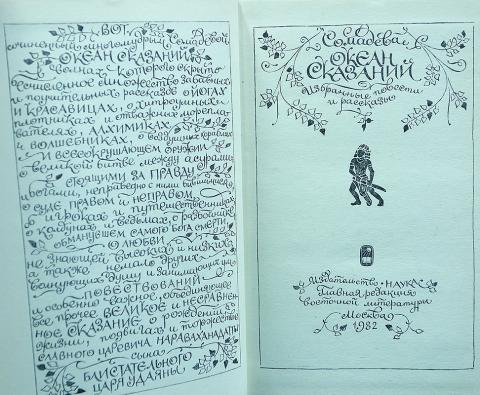 ВОТ
сочинённый синклемудрым Сомадевой
ОКЕАН СКАЗАНИЙ
в волнах которого скрыто
бесчисленное множество забавных
и поучительных рассказов о йогах
и красавицах, о хитроумных
плотниках и отважных морепла-
вателях, АЛХИМИКАХ
и ВОЛШЕБНИКАХ, о воздушных кораблях
И ВСЕСОКРУШАЮЩЕМ ОРУЖИИ
о великой битве между асурами
СТОЯЩИМИ ЗА ПРАВДУ
и богами, неправедно с ними бившимися,
о суде ПРАВОМ и НЕПРАВОМ
о игроках и путешественниках
о колдунах и ведьмах, о разбойнике
обманувшем самого БОГА СМЕРТИ,
О ЛЮБВИ
не знающей высоких и низких
а также немало других
волнующих душу и занимающих ум
ПОВЕСТВОВАНИЙ
и особенно важное, объединяющее
все прочее ВЕЛИКОЕ и НЕСРАВНЕН-
НОЕ СКАЗАНИЕ о рождении,
жизни, подвигах и торжестве
славного царевича НАРАВАХАНАДАТТЫ
сына
БЛИСТАТЕЛЬНОГО
ЦАРЯ УДАЯНЫ
Сомадева
ОКЕАН
СКАЗАНИЙ
Избранные повести
и рассказы
Издательство НАУКА
Главная редакция
восточной литературы
Москва
1982